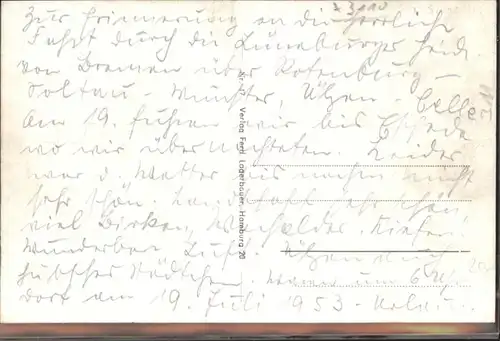 Zur Erinnerung an die herrliche
Fahrt durch die Lüneburger Heide.
von Bremen über Rotenburg –
Soltau – Munster, Ülzen – Celle
Am 19. fuhren wir bis
wo wir übernachteten. Leider
war d. Wetter bis nicht
sehr schön. Landschaft schön,
viel Birken, Kiefern.
Wunderbare Luft. Ülzen auch
hübsches Städtchen. um 6
dort am 19. Juli 1953 –
Nr. 47 Verlag Ferd. Lagerbauer, Hamburg 20